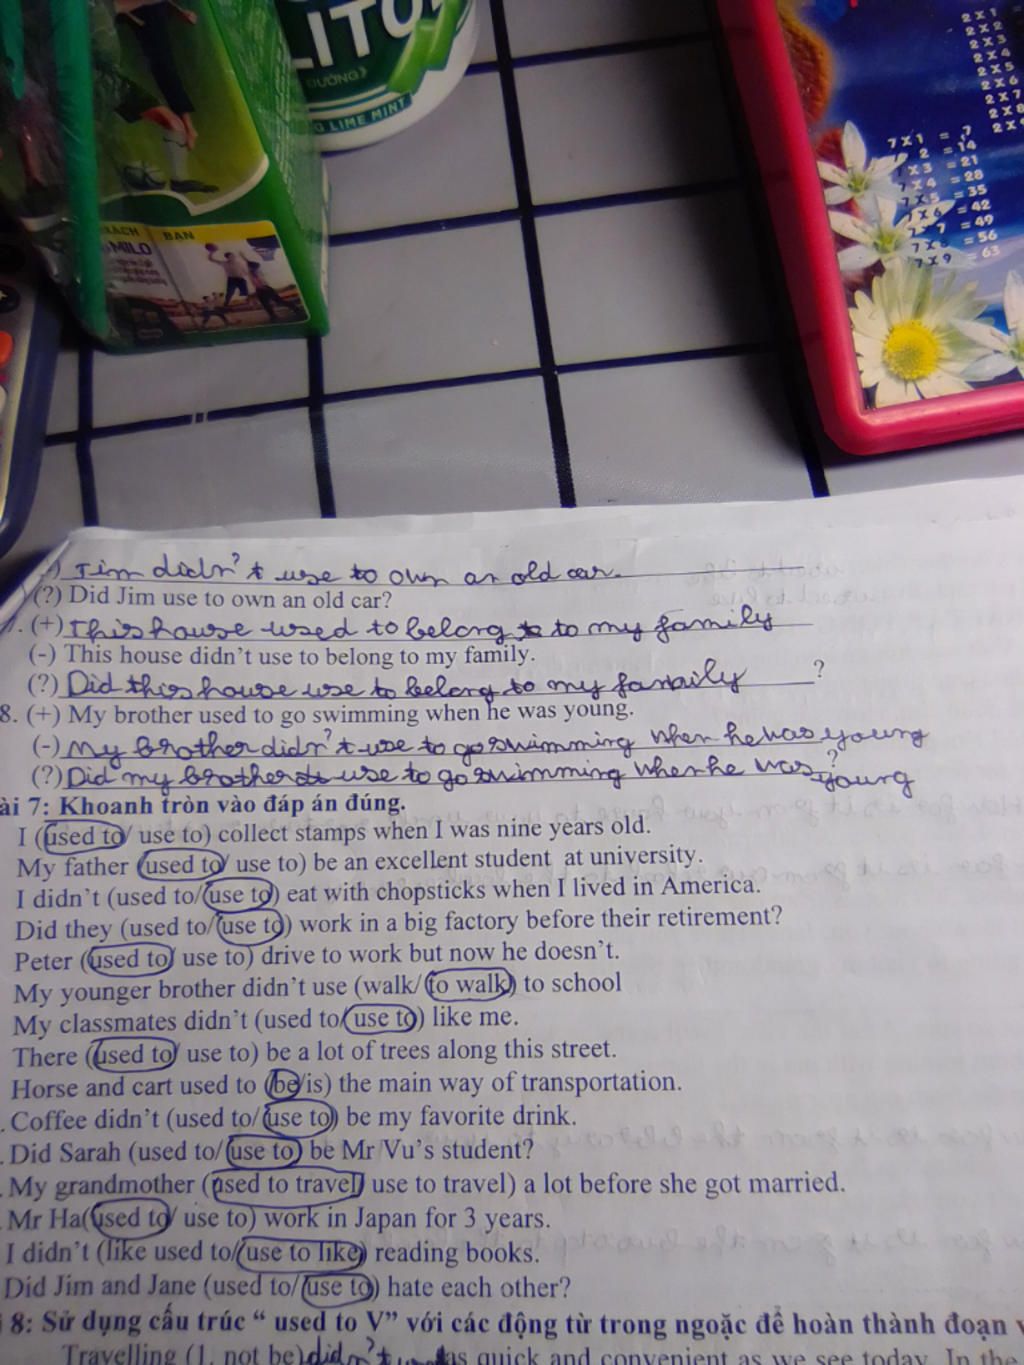 LITO
DƯỠNG
G LIME MINT
BẠCH BAN
MILO
2 X 1 =
2 X 2
2 X 3
2 X 4
2 X 5
2 X 6
2 X 7
2 X 8
2 X
7 X 1 = 7
2 = 14
7 X 3 = 21
7 X 4 = 28
7 X 5 = 35
7 X 6 = 42
7 = 49
7 X 8 = 56
7 X 9 = 63
) Jim didn't use to own an old car.
(?) Did Jim use to own an old car?
7. (+) This house used to belong to my family
(-) This house didn't use to belong to my family.
(?) Did this house use to belong to my family ?
8. (+) My brother used to go swimming when he was young.
(-) My brother didn't use to go swimming when he was young
(?) Did my brother use to go swimming when he was young ?
ài 7: Khoanh tròn vào đáp án đúng.
I (used to/ use to) collect stamps when I was nine years old.
My father (used to/ use to) be an excellent student at university.
I didn't (used to/ use to) eat with chopsticks when I lived in America.
Did they (used to/ use to) work in a big factory before their retirement?
Peter (used to/ use to) drive to work but now he doesn't.
My younger brother didn't use (walk/ to walk) to school
My classmates didn't (used to/ use to) like me.
There (used to/ use to) be a lot of trees along this street.
Horse and cart used to (be/is) the main way of transportation.
. Coffee didn't (used to/ use to) be my favorite drink.
. Did Sarah (used to/ use to) be Mr Vu's student?
. My grandmother (used to travel/ use to travel) a lot before she got married.
. Mr Ha(used to/ use to) work in Japan for 3 years.
I didn't (like used to/ use to like) reading books.
Did Jim and Jane (used to/ use to) hate each other?
i 8: Sử dụng cấu trúc “ used to V” với các động từ trong ngoặc để hoàn thành đoạn v
Travelling (1. not be) didn't as quick and convenient as we see today. In the